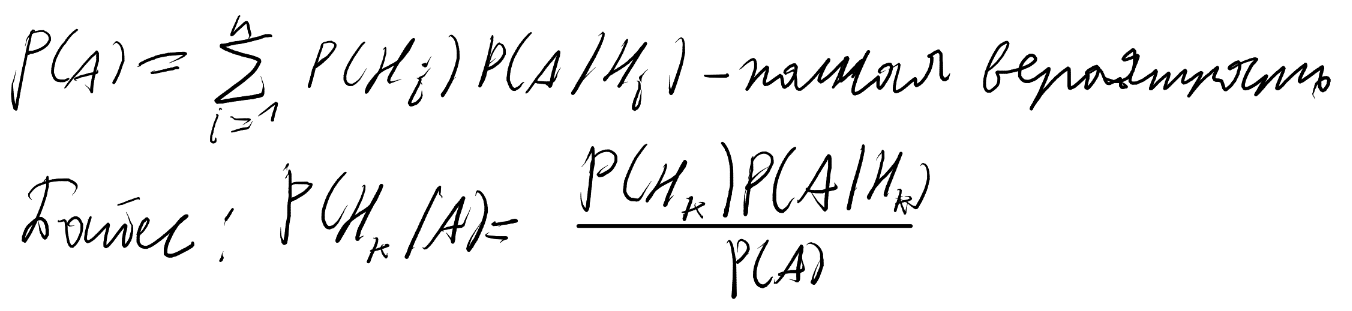 P(A) = ∑_{i=1}^{n} P(H_i) P(A/H_i) - полная вероятность
Байес: P(H_k/A) = P(H_k)P(A/H_k) / P(A)